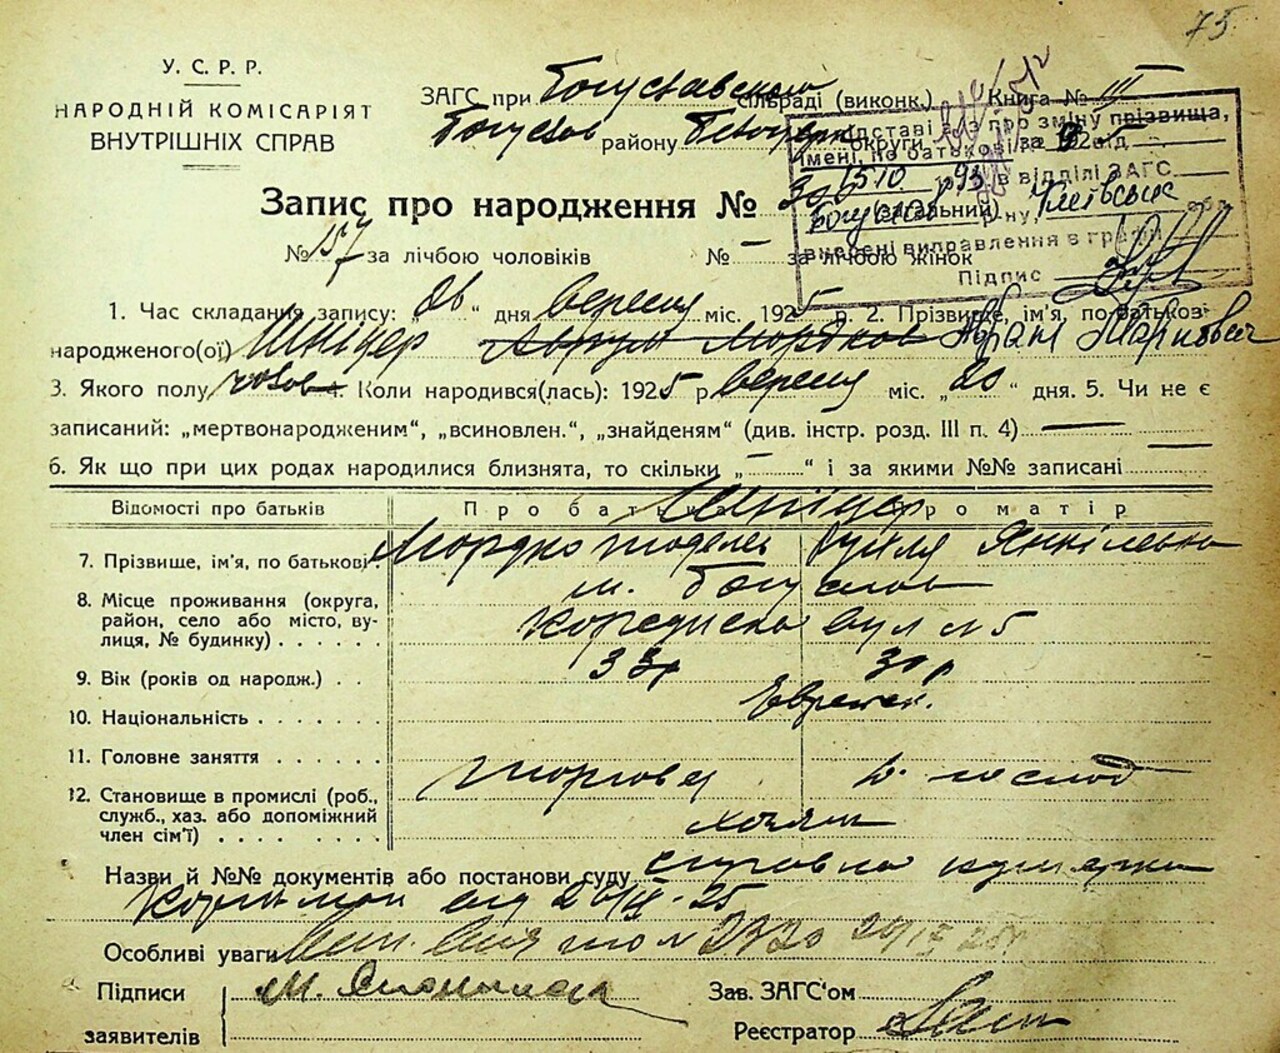 75.
У. С. Р. Р.
НАРОДНІЙ КОМІСАРІЯТ
ВНУТРІШНІХ СПРАВ
ЗАГС при Богуславском сільраді (виконк.) Книга № III
Богуслав району Білоцерк округи за 1925
Запис про народження № 306 (загальний)
№ 157 за лічбою чоловіків № — за лічбою жінок
На підставі про зміну прізвища,
імені, по батькові від
в відділі ЗАГС
Богуслав р-ну, Київська обл
внесені виправлення в графи
Підпис
1. Час складання запису: „ 26 “ дня вересня міс. 1925 р. 2. Прізвище, ім'я, по батькові
народженого(ої) Шніцер Мордков Абрам Маркович
3. Якого полу чолов 4. Коли народився(лась): 1925 р вересня міс. „ 20 “ дня. 5. Чи не є
записаний: „мертвонародженим“, „всиновлен.“, „знайденям“ (див. інстр. розд. III п. 4) —
6. Як що при цих родах народилися близнята, то скільки „ — “ і за якими №№ записані —
Відомості про батьків Про батька Про матір
Шніцер
7. Прізвище, ім'я, по батькові Мордко Янкілевна
8. Місце проживання (округа, м. Богуслав
район, село або місто, ву-
лиця, № будинку) . . . . . вул № 5
9. Вік (років од народж.) . . 33р 30р
10. Національність . . . . . . . Еврейск.
11. Головне заняття . . . . . . торговец д. господ
12. Становище в промислі (роб.,
служб., хаз. або допоміжний
член сім'ї) . . . . . . . . хозяин
Назви й №№ документів або постанови суду справка
від 26/IX-25
Особливі уваги № 2320
Підписи М. Зав. ЗАГС'ом
заявителів Реєстратор